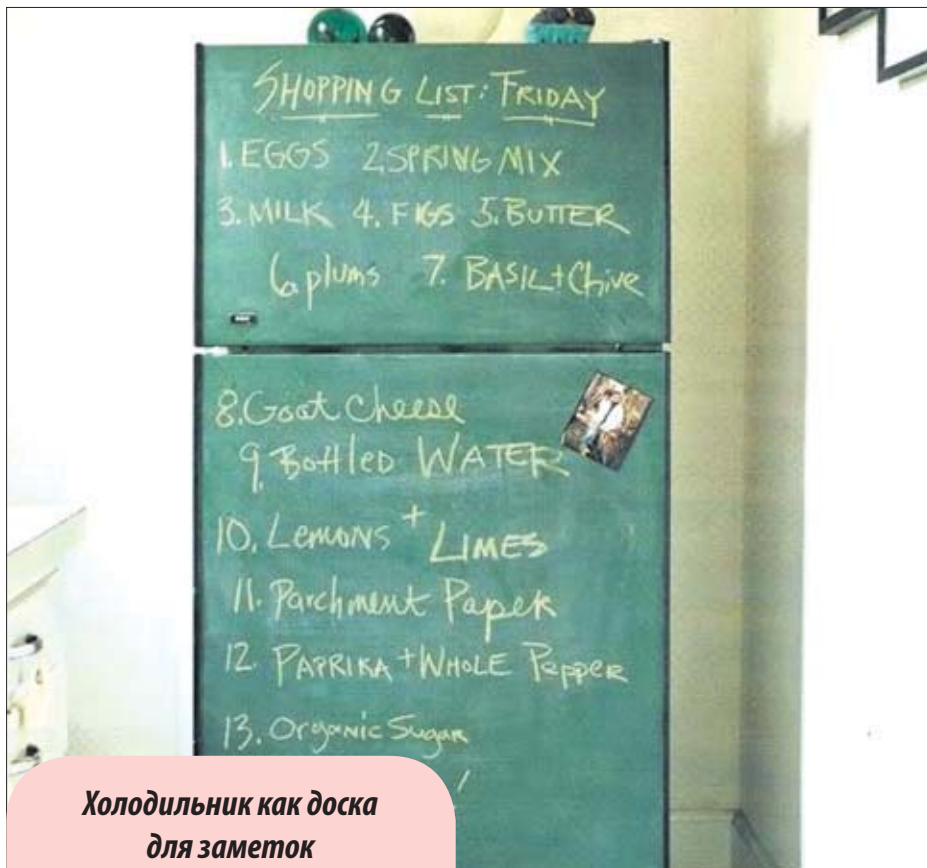 SHOPPING LIST: FRIDAY
1. EGGS 2. SPRING MIX
3. MILK 4. FIGS 5. BUTTER
6. plums 7. BASIL + Chive
8. Goat Cheese
9. Bottled WATER
10. Lemons + LIMES
11. Parchment Paper
12. PAPRIKA + WHOLE Pepper
13. Organic Sugar
Холодильник как доска
для заметок